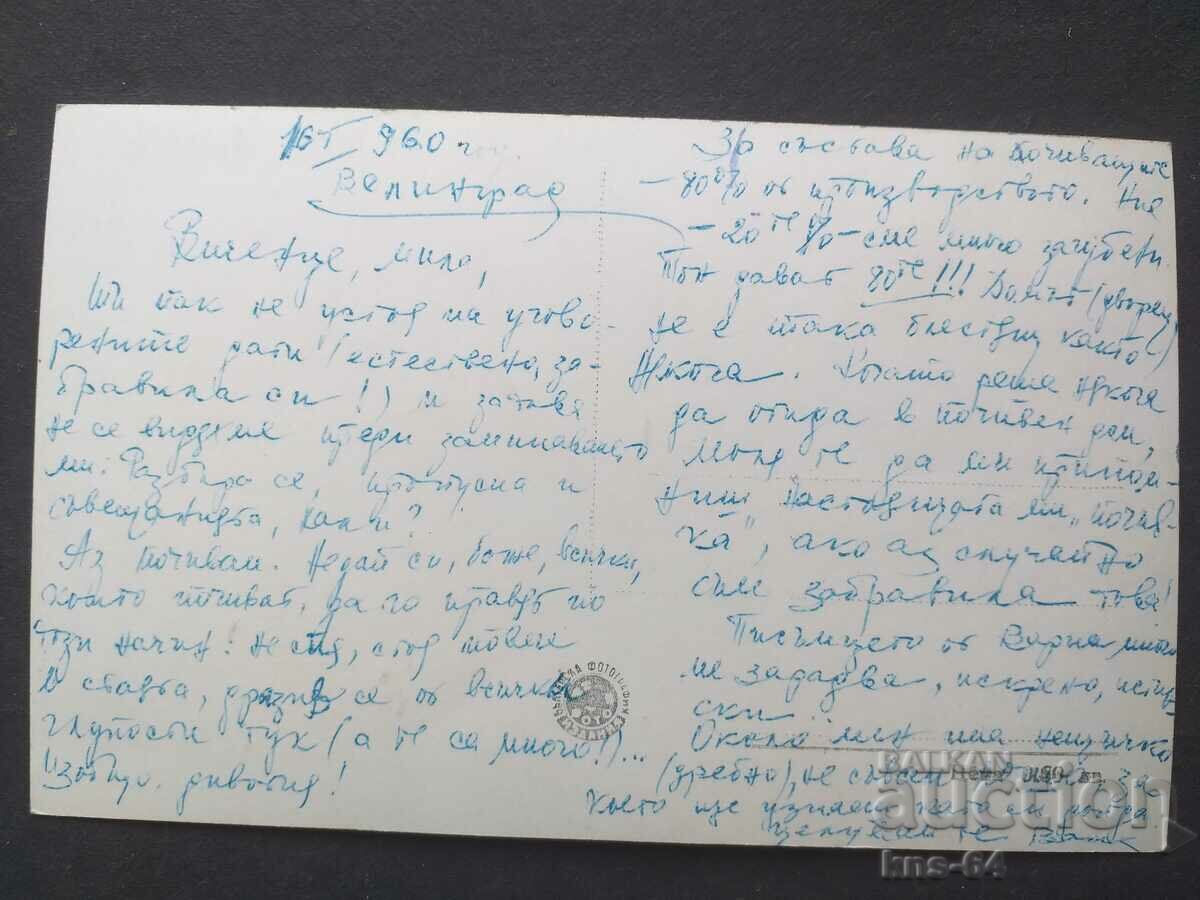 16 I 960 год.
Велинград
Виченце, мила,
Ти пак не устоя на угово-
рените дати (естествено, за-
бравила си!) и затова
не се видяхме преди заминаването
ми. Разбира се, пропусна и
съвещанията, нали?
Аз почивам. Недай си, боже, всички,
които почиват, да го правят по
този начин! Не спя, стоя повече
в стаята, дразня се от всички
глупости тук (а те са много!)...
Изобщо, дивотия!
За състава на почиващите
- 80% от производството. Ние
- 20те % - сме много загубени.
Тон дават 80те!!! Домът (дворец)
не е така блестящ както
някога. Когато реша някога
да отида в почивен дом,
моля те да ми припом-
ниш настоящата ми „почив-
ка", ако аз случайно
съм забравила това!
Писъмцето от Варна много
ме зарадва, искрено, истин-
ски.
Около мен има нещичко
(дребно), не съвсем, за
което ще узнаеш като си дойда
Целувам те
БЪЛГАРСКА ФОТОГРАФИЯ
ФОТО
Цена
BALKAN
auction
kns-64